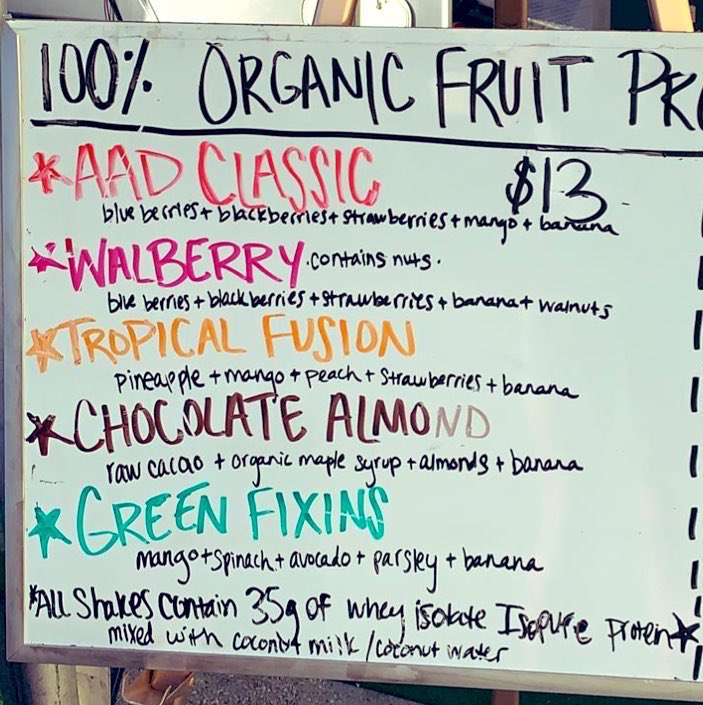 100% ORGANIC FRUIT PR
*AAD CLASSIC $13
blueberries + blackberries + strawberries + mango + banana
*WALBERRY • contains nuts •
blue berries + black berries + strawberries + banana + walnuts
*TROPICAL FUSION
pineapple + mango + peach + strawberries + banana
*CHOCOLATE ALMOND
raw cacao + organic maple syrup + almonds + banana
*GREEN FIXINS
mango + spinach + avocado + parsley + banana
*All Shakes contain 35g of whey isolate Isopure Protein*
mixed with coconut milk / coconut water